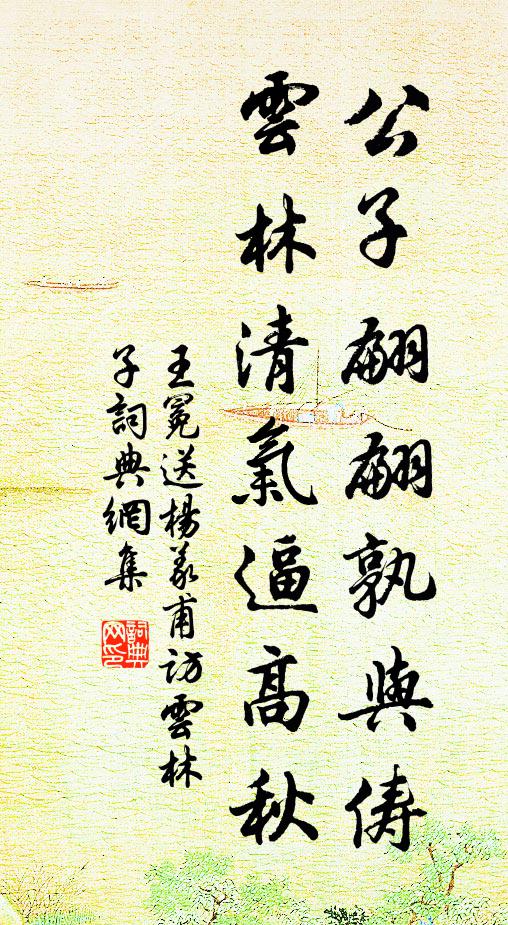 公子翩翩孰與儔
雲林清氣逼高秋
王冕送楊義甫訪雲林
子詞典網集
詞典網印